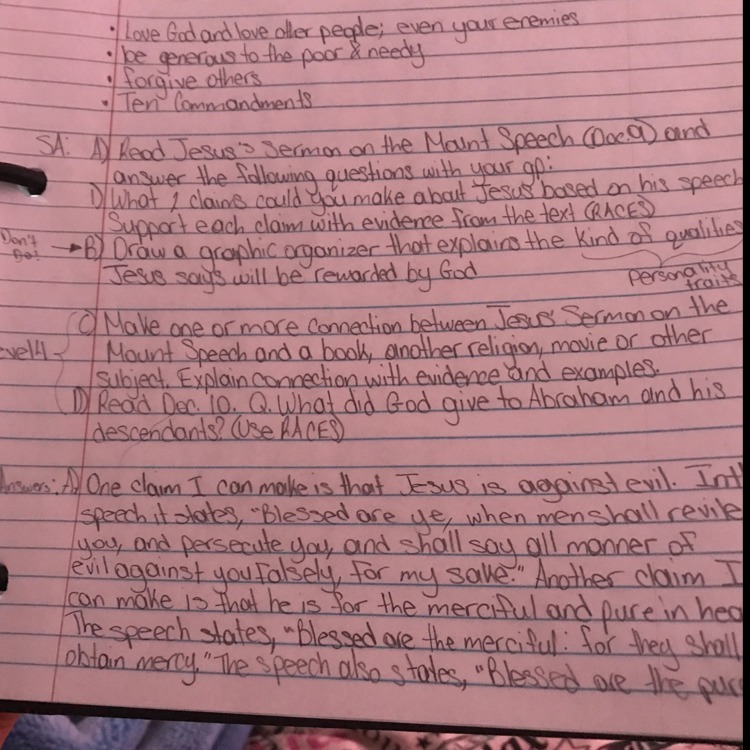 • Love God and love other people; even your enemies
• be generous to the poor & needy
• forgive others
• Ten Commandments
SA: A) Read Jesus's Sermon on the Mount Speech (Doc.9) and
answer the following questions with your gp:
1) What 2 claims could you make about Jesus based on his speech
Support each claim with evidence from the text (RACES)
Don't Do! → B) Draw a graphic organizer that explains the kind of qualities
Jesus says will be rewarded by God
personality traits
C) Make one or more connection between Jesus' Sermon on the
evel4 - Mount Speech and a book, another religion, movie or other
subject. Explain connection with evidence and examples.
D) Read Doc. 10. Q. What did God give to Abraham and his
descendants? (Use RACES)
Answers: A) One claim I can make is that Jesus is against evil. Int
speech it states, "Blessed are ye, when men shall revile
you, and persecute you, and shall say all manner of
evil against you falsely, for my sake." Another claim I
can make is that he is for the merciful and pure in hea
The speech states, "Blessed are the merciful: for they shall
obtain mercy." The speech also states, "Blessed are the pure